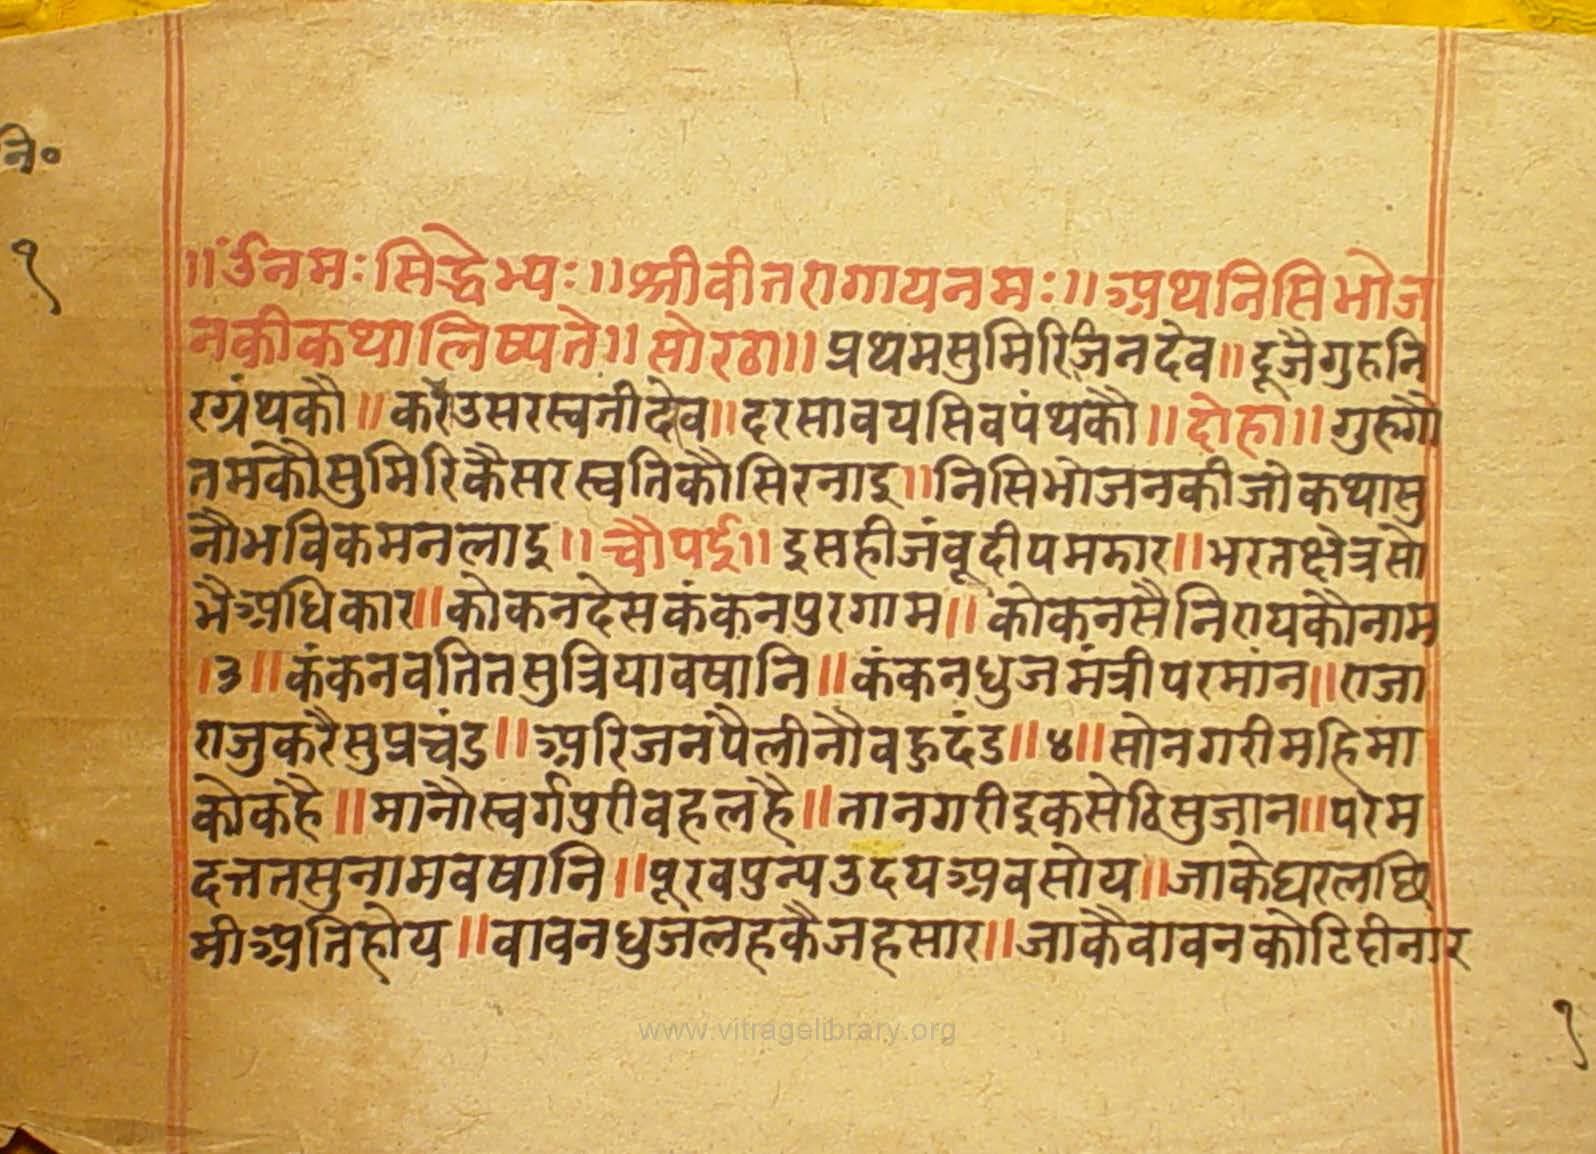 नि॰
१
॥ॐनमःसिद्धेभ्यः॥श्रीवीतरागायनमः॥अथनिसिभोज
नकीकथालिष्यते॥सोरठा॥प्रथमसुमिरिजिनदेव॥दूजैगुरुनि
रग्रंथकौ॥करौउसरस्वतीदेव॥दरसावयसिवपंथकौ॥दोहा॥गुरुगौ
तमकौसुमिरिकैसरस्वतिकौसिरनाइ॥निसिभोजनकीजोकथासु
नौभविकमनलाइ॥चौपई॥इसहीजंवूदीपमझार॥भरतक्षेत्रसो
भैअधिकार॥कोकनदेसकंकनपुरगाम॥कोकनसैनिरायकौनाम
।३॥कंकनवतितसुत्रियावषानि॥कंकनधुजमंत्रीपरमांन॥राजा
राजुकरैसुप्रचंड॥अरिजनपैलीनौवहुदंड॥४॥सोनगरीमहिमा
कोकहै॥मानौस्वर्गपुरीवहलहै॥तानगरीइकसेठिसुजान॥परम
दत्ततसुनामवषानि॥पूरवपुन्यउदयअवसोय॥जाकेघरलछि
मीअतिहोय॥वावनधुजलहकैजहसार॥जाकैवावनकोटिदीनार
१
www.vitragelibrary.org